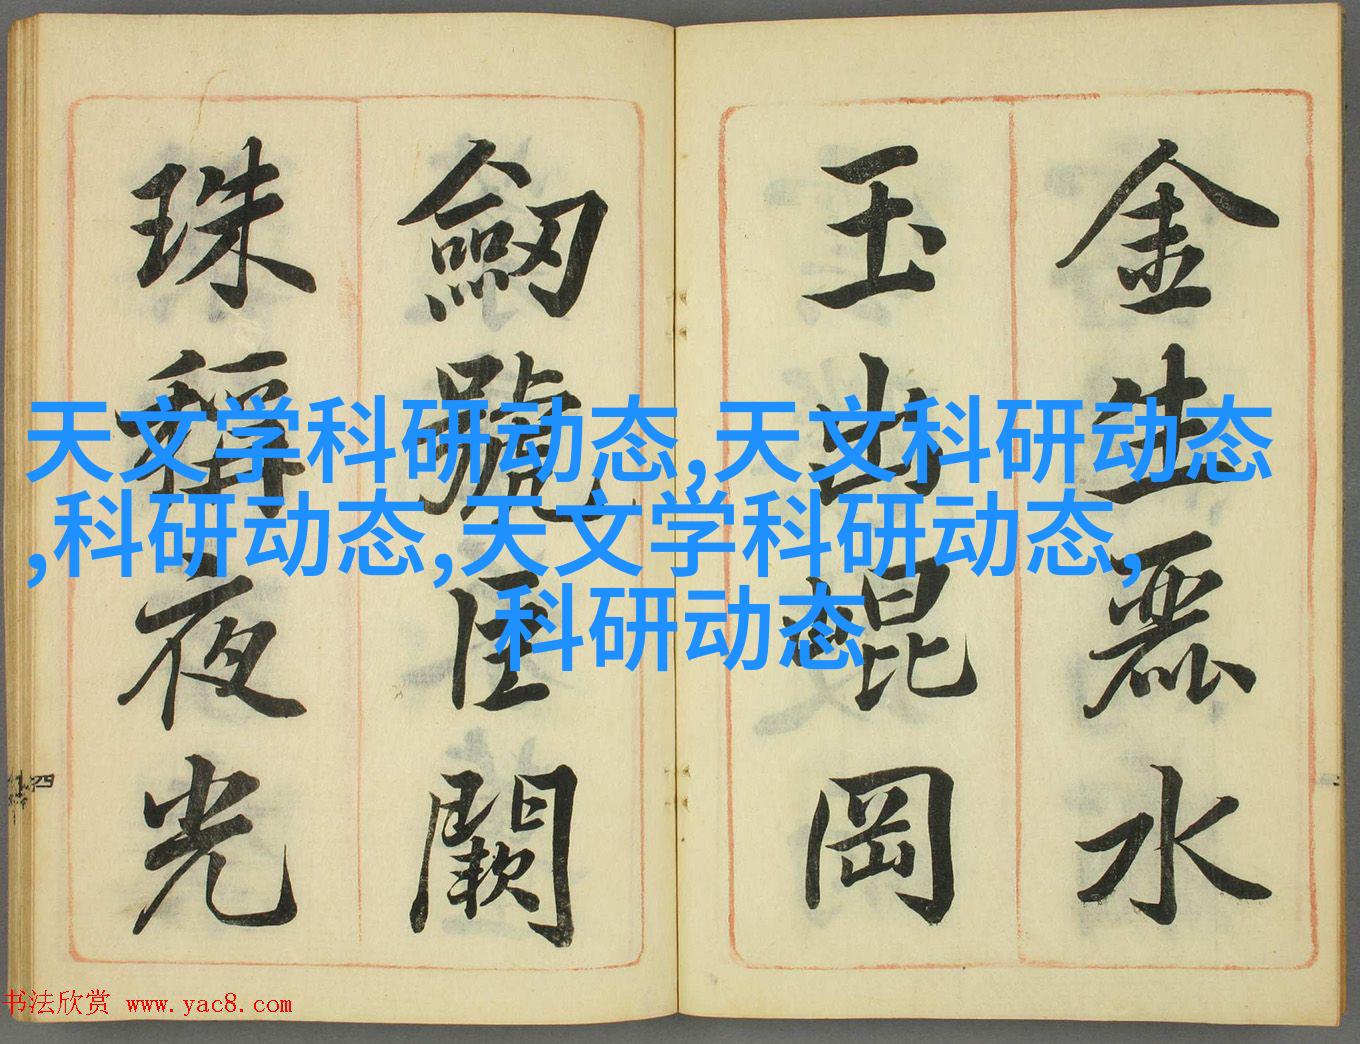 金生麗水
玉出崐岡
劒號巨闕
珠稱夜光
天文学科研动态,天文科研动态
,科研动态,天文学科研动态,
科研动态
书法欣赏 www.yac8.com